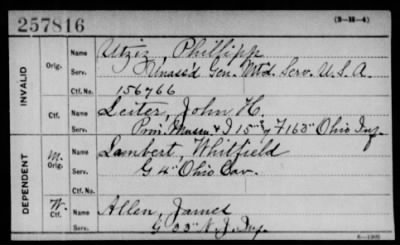 257816
(3-H-4)
INVALID
Orig.
Name
Utziz, Phillipp
Serv.
Unass'd Gen. Mtd. Serv. U.S.A.
Ctf. No.
156766
Ctf.
Name
Leiter, John H.
Serv.
Prin. Muscn. & I 15" & F 163" Ohio Inf.
DEPENDENT
M.
Orig.
Name
Lambert, Whitfield
Serv.
G 4" Ohio Cav.
Ctf. No.
W.
Ctf.
Name
Allen, James
Serv.
G 33" N.J. Inf.